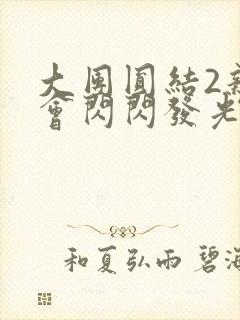 大團圓結2新
會閃閃發光
和夏弘雨 碧海